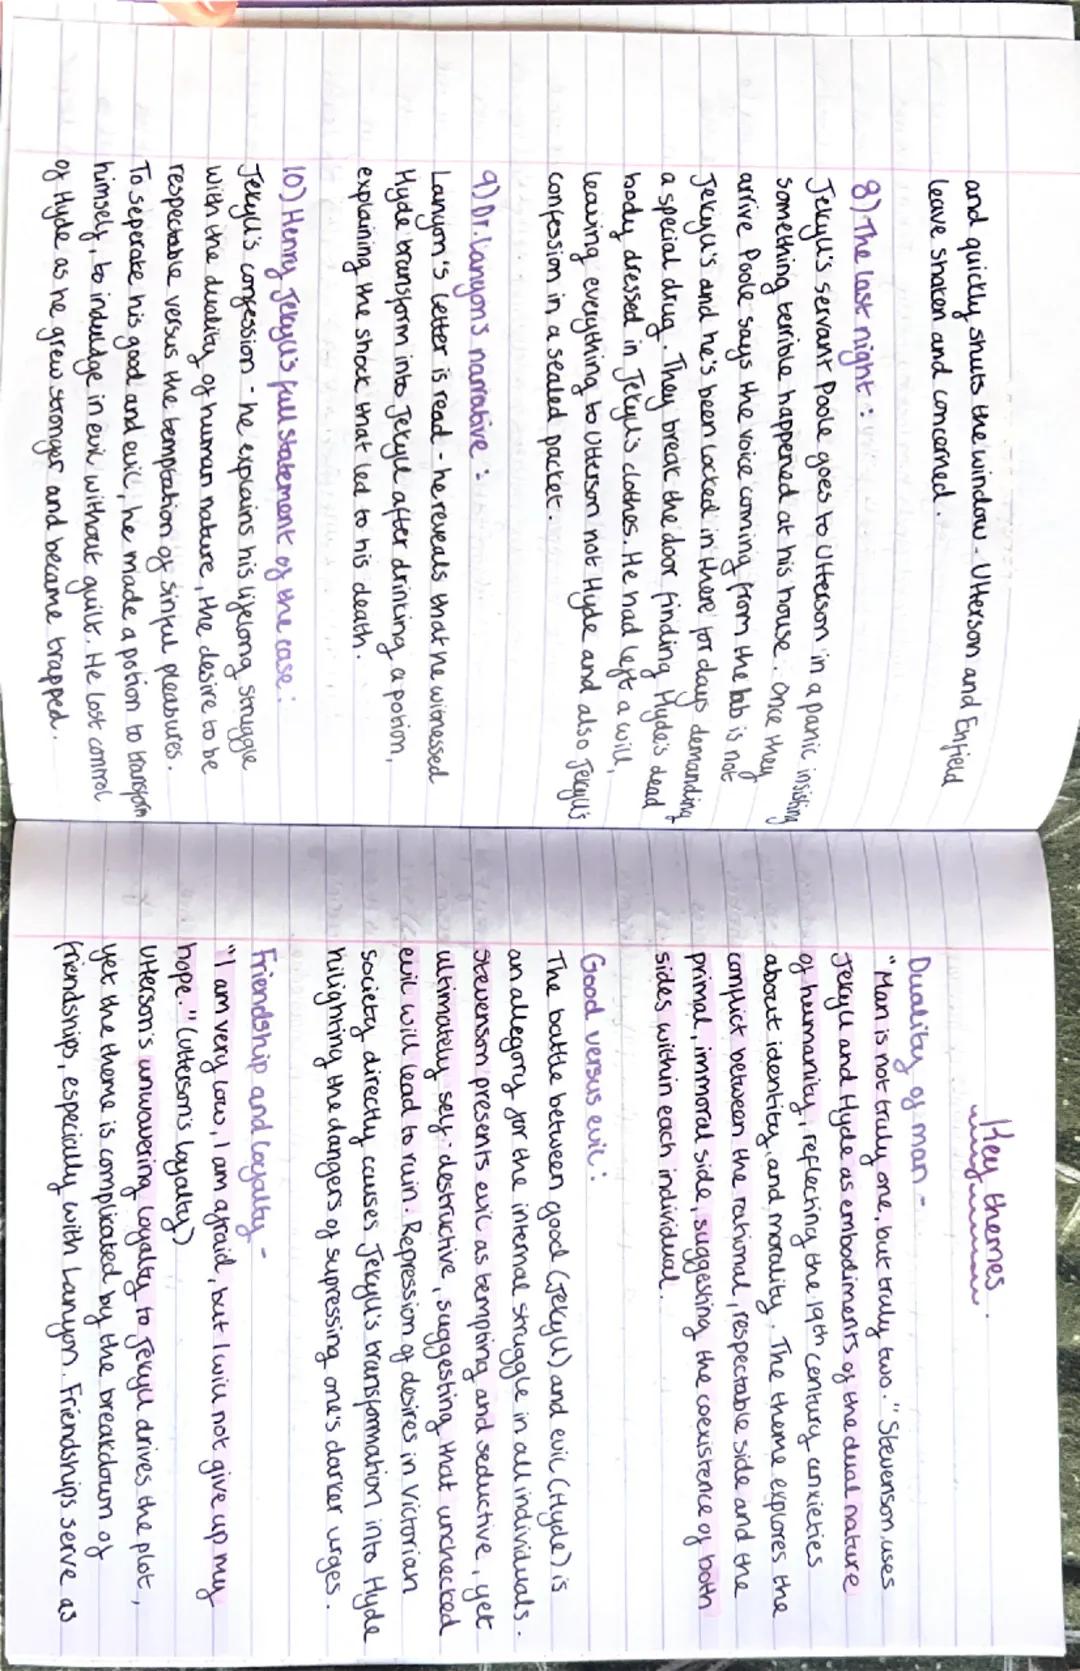 and quickly shuts the window. Utterson and Enfield
leave shaken and concerned.
8) The last night :
Jekyll's servant Poole goes to Utterson in a panic insisting
something terrible happened at his house. Once they
arrive Poole says the voice coming from the lab is not
Jekyll's and he's been locked in there for days demanding
a special drug. They break the door finding Hyde's dead
body dressed in Jekyll's clothes. He had left a will,
leaving everything to Utterson not Hyde and also Jekyll's
confession in a sealed packet.
9) Dr. Lanyons narrative :
Lanyon's letter is read - he reveals that he witnessed
Hyde transform into Jekyll after drinking a potion,
explaining the shock that led to his death.
10) Henry Jekyll's full statement of the case :
Jekyll's confession - he explains his lifelong struggle
with the duality of human nature, the desire to be
respectable versus the temptation of sinful pleasures.
To seperate his good and evil, he made a potion to transform
himself, to induldge in evil without guilt. He lost control
of Hyde as he grew stronger and became trapped.
Key themes.
Duality of man -
"Man is not truly one, but truly two." Stevenson uses
Jekyll and Hyde as embodiments of the dual nature
of humanity, reflecting the 19th century anxieties
about identity and morality. The theme explores the
conflict between the rational, respectable side and the
primal, immoral side, suggesting the coexistence of both
sides within each individual.
Good versus evil :
The battle between good (Jekyll) and evil (Hyde) is
an allegory for the internal struggle in all individuals.
Stevenson presents evil as tempting and seductive, yet
ultimately self-destructive, suggesting that unchecked
evil will lead to ruin. Repression of desires in Victorian
society directly causes Jekyll's transformation into Hyde
hilighting the dangers of supressing one's darker urges.
Friendship and loyalty -
"I am very low, I am afraid, but I will not give up my
hope." (Utterson's loyalty)
Utterson's unwavering loyalty to Jekyll drives the plot,
yet the theme is complicated by the breakdown of
friendships, especially with Lanyon. Friendships serve as